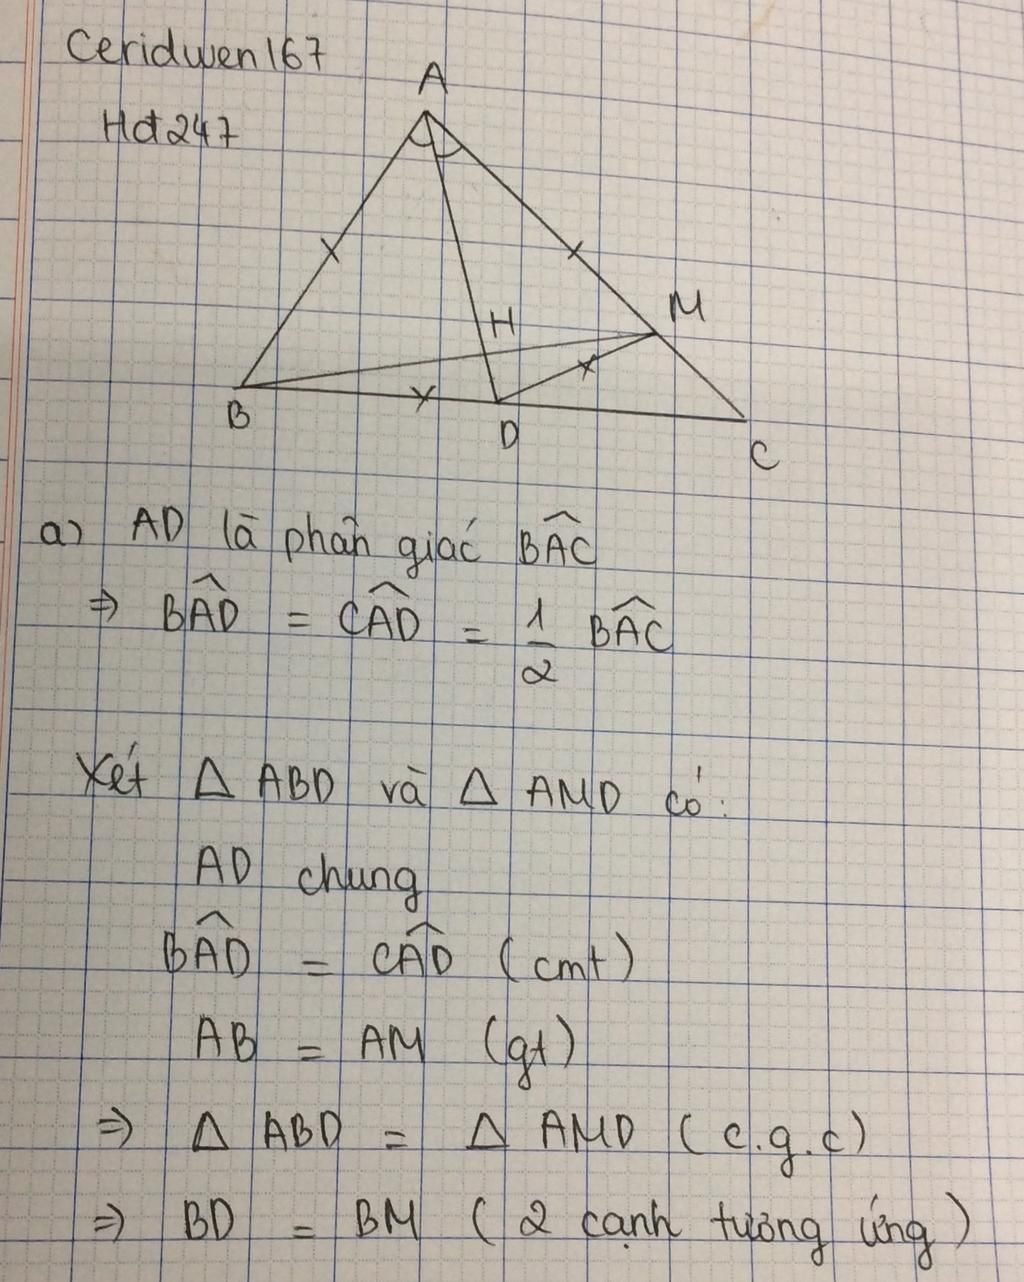 Ceridwen167
A
Hd247
M
H
B
D
C
a) AD là phân giác BÂC
⇒ BÂD = CÂD = 1/2 BÂC
Xét Δ ABD và Δ AMD có:
AD chung
BÂD = CÂD (cmt)
AB = AM (gt)
⇒ Δ ABD = Δ AMD (c.g.c)
⇒ BD = BM (2 cạnh tương ứng)